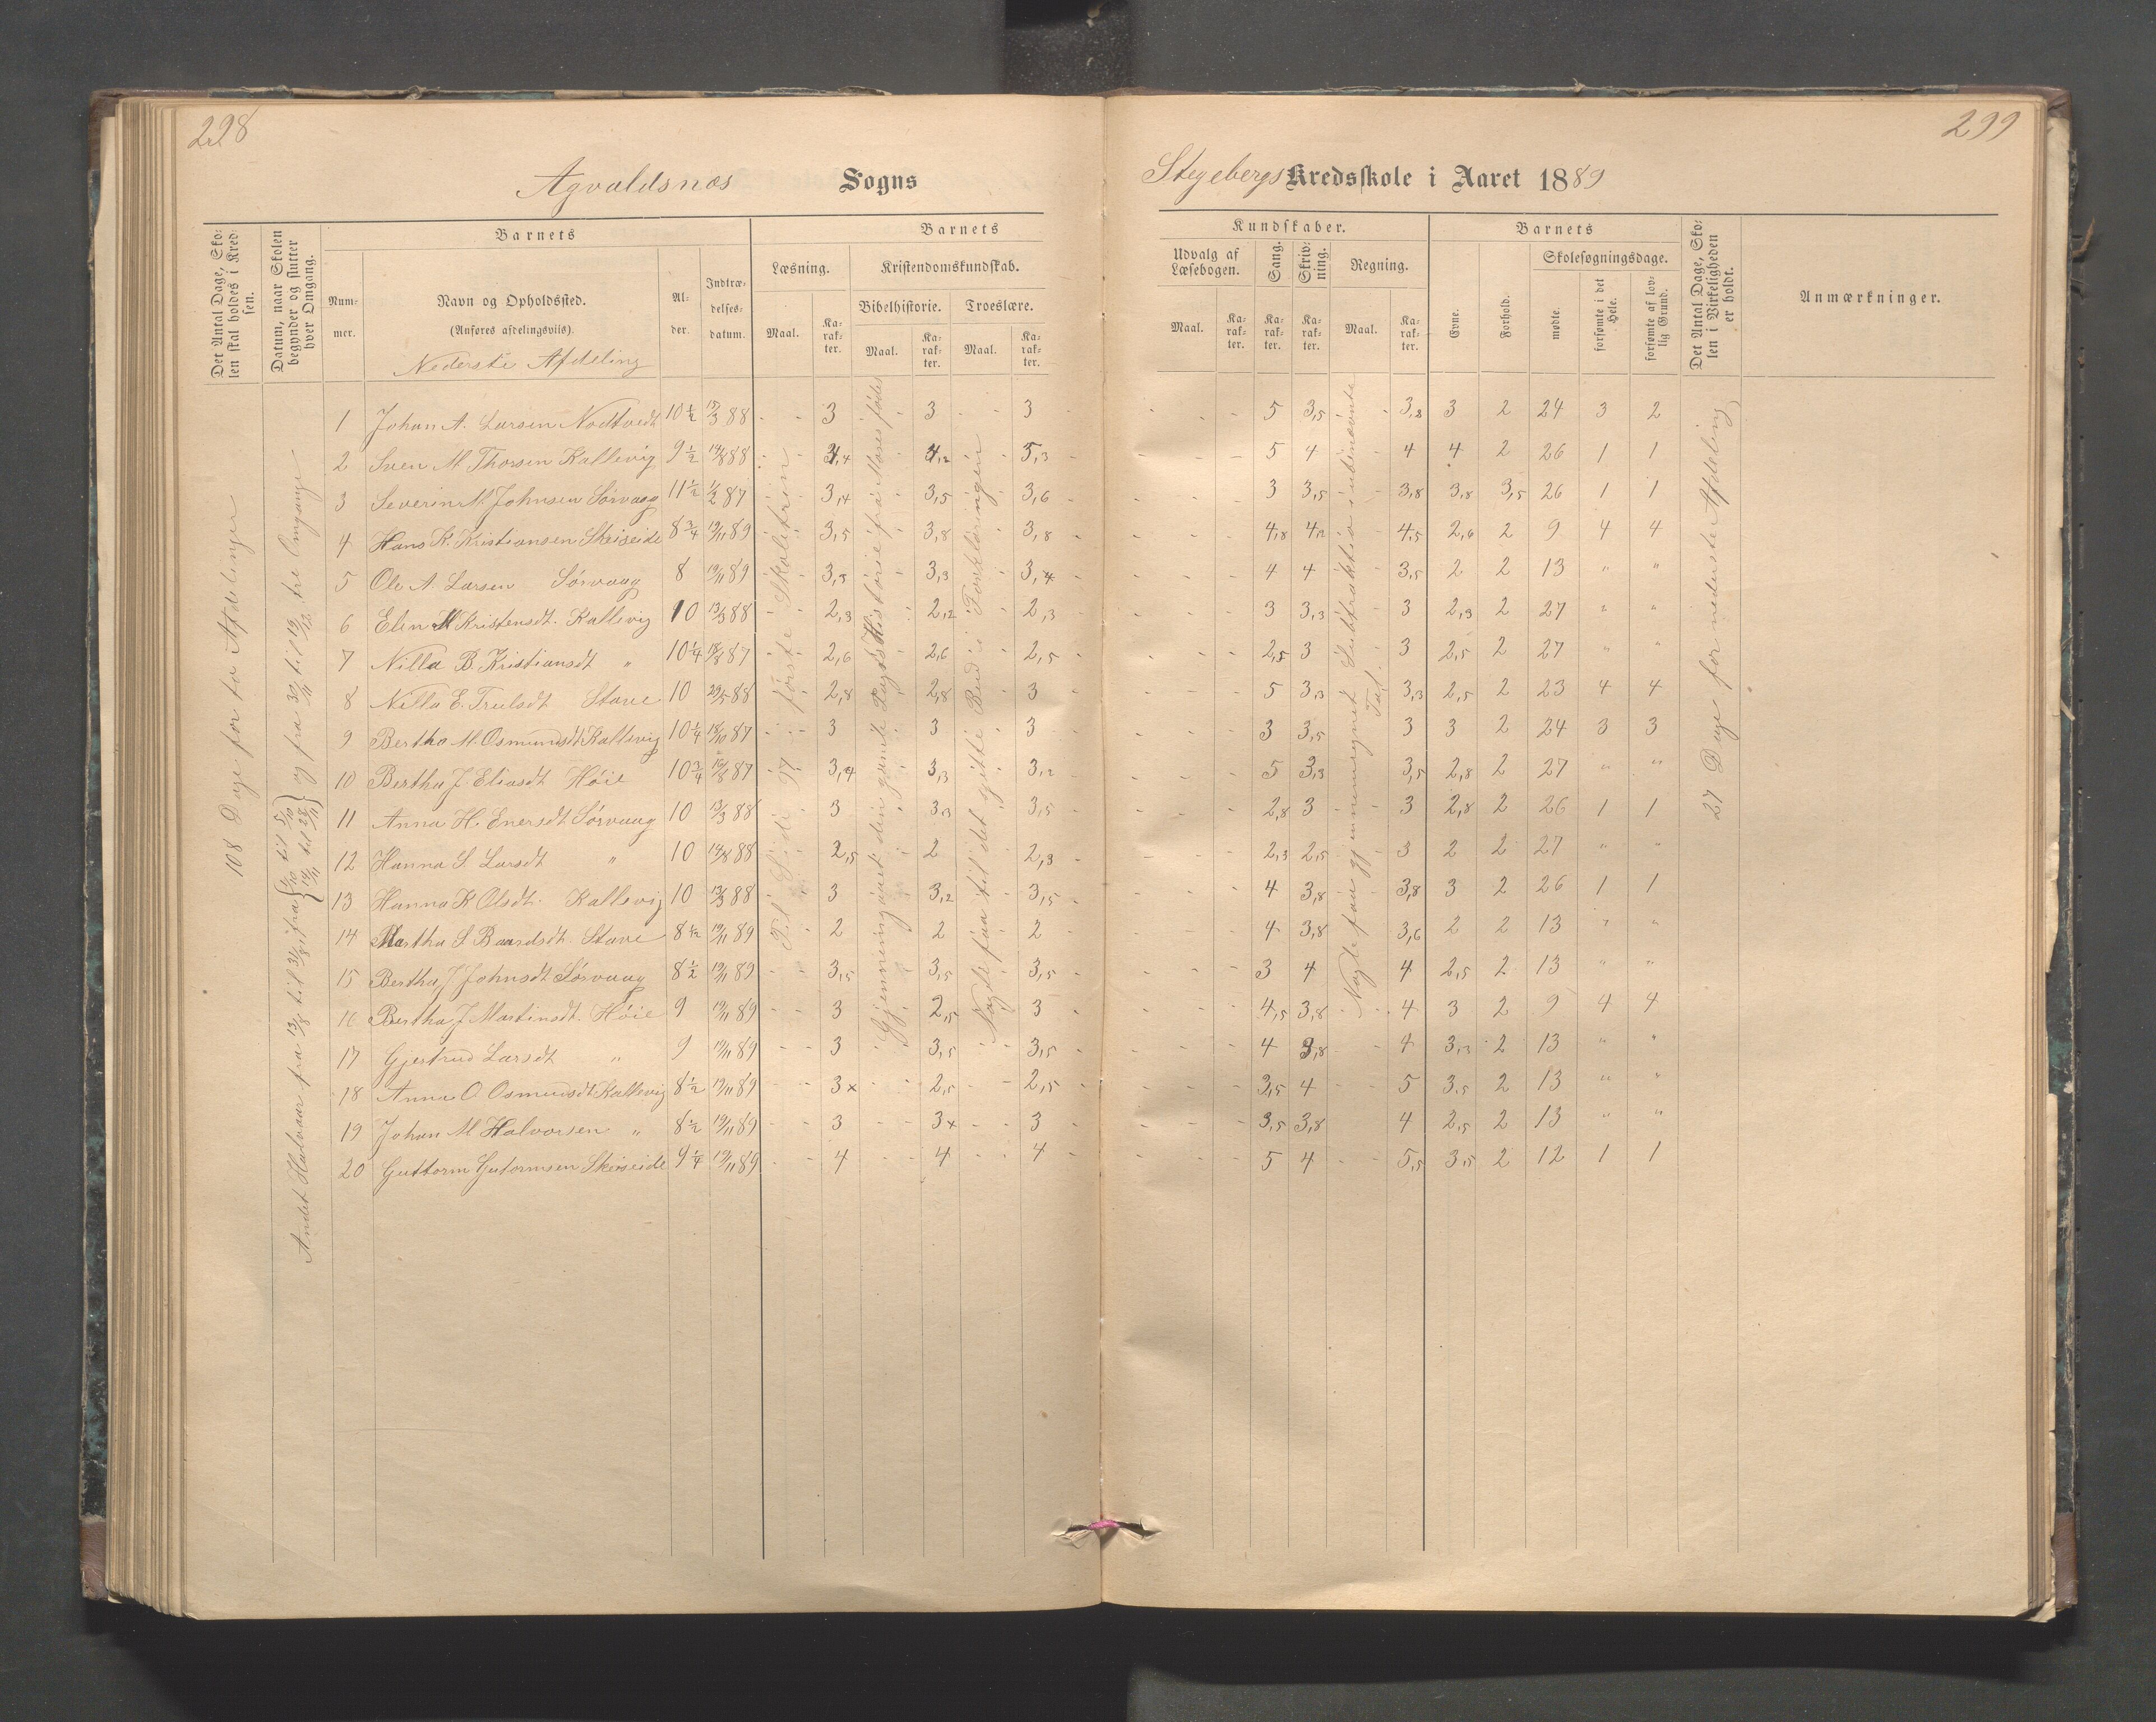 298
299
Agvaldsnes Sogns
Stegebergs Kredsskole i Aaret 1889
Det Antal Dage, Skolen skal holdes i Kredsen.
Datum, naar Skolen begynder og slutter hver Omgang.
Barnets
Nummer.
Navn og Opholdssted.
(Anføres afdelingsviis).
Nederste Afdeling
Alder.
Indtrædelsesdatum.
Barnets
Læsning.
Maal.
Karakter.
Kristendomskundskab.
Bibelhistorie.
Maal.
Karakter.
Troeslære.
Maal.
Karakter.
Kundskaber.
Udvalg af Læsebogen.
Maal.
Karakter.
Sang.
Karakter.
Skrivning.
Karakter.
Regning.
Maal.
Karakter.
Barnets
Evne.
Forhold.
Skolesøgningsdage.
mødte.
forsømte i det Hele.
forsømte af lovlig Grund.
Det Antal Dage, Skolen i Virkeligheden er holdt.
Anmærkninger.
108 Dage for to Afdelinger
og fra 30/11 til 19/12 tre Omgange
Til Side 97 i første Skoletrin
Gjennemgaaet den gamle Pagts Historie fra Moses fødes
Nogle faa til det sjette Bud i Forklaringen
Nogle faa gjennemregnet Subtraktio i ubenævnte Tal.
27 Dage for nederste Afdeling
1 Johan A. Larsen Nodtvedt 10 1/2 15/3 88 3 3 3 5 3,5 3,2 3 2 24 3 2
2 Sven M. Thorsen Kallevig 9 1/2 14/8 88 4,4 4,2 5,3 5 4 4 4 2 26 1 1
3 Severin M. Johnsen Sørvaag 11 1/2 1/2 87 3,4 3,5 3,6 3 3,5 3,8 3,8 3,5 26 1 1
4 Hans K. Kristiansen Skeiseide 8 3/4 19/11 89 3,5 3,8 3,8 4,8 4,2 4,5 2,6 2 9 4 4
5 Ole A. Larsen Sørvaag 8 19/11 89 3,3 3,3 3,4 4 4 3,5 2 2 13 " "
6 Elen M Kristensdt. Kallevig 10 13/3 88 2,3 2,2 2,3 3 3,3 3 2,3 2 27 " "
7 Nilla B. Kristiansdt " 10 1/4 18/8 87 2,6 2,6 2,5 2,5 3 3 2,5 2 27 " "
8 Nilla E. Trulsdt Stave 10 29/5 88 2,8 2,8 3 5 3,3 3,3 2,5 2 23 4 4
9 Bertha M. Osmundsdt Kallevig 10 1/4 18/10 87 3 3 3 3 3,5 3 3 2 24 3 3
10 Bertha J. Eliasdt Høie 10 3/4 16/8 87 3,4 3,3 3,2 5 3,3 3,5 2,8 2 27 " "
11 Anna H. Enersdt Sørvaag 10 13/3 88 3 3,3 3,5 2,8 3 3 2,8 2 26 1 1
12 Hanna S. Larsdt " 10 14/8 88 2,5 2 2,3 2,3 2,5 3 2 2 27 " "
13 Hanna K Olsdt. Kallevig 10 13/3 88 3 3,2 3,5 4 3,8 3,8 3 2 26 1 1
14 Martha S. Baardsdt. Stave 8 1/2 19/11 89 2 2 2 4 3,8 3,6 2 2 13 " "
15 Bertha J Johnsdt Sørvaag 8 1/2 19/11 89 3,5 3,5 3,5 3 4 4 2,5 2 13 " "
16 Bertha J. Martinsdt. Høie 9 19/11 89 3 2,5 3 4,5 3,8 4 3 2 9 4 4
17 Gjertrud Larsdt " 9 19/11 89 3 3,5 3,5 4 3,8 4 3,3 2 13 " "
18 Anna O. Osmundsdt Kallevig 8 1/2 19/11 89 3x 2,5 2,5 3,5 4 5 3,5 2 13 " "
19 Johan M Halvorsen " 8 1/2 19/11 89 3 3x 3 3,5 3,8 4 2,5 2 13 " "
20 Guttorm Gutormsen Skeiseide 9 1/4 19/11 89 4 4 4 5 4 5,5 3,5 2 12 1 1